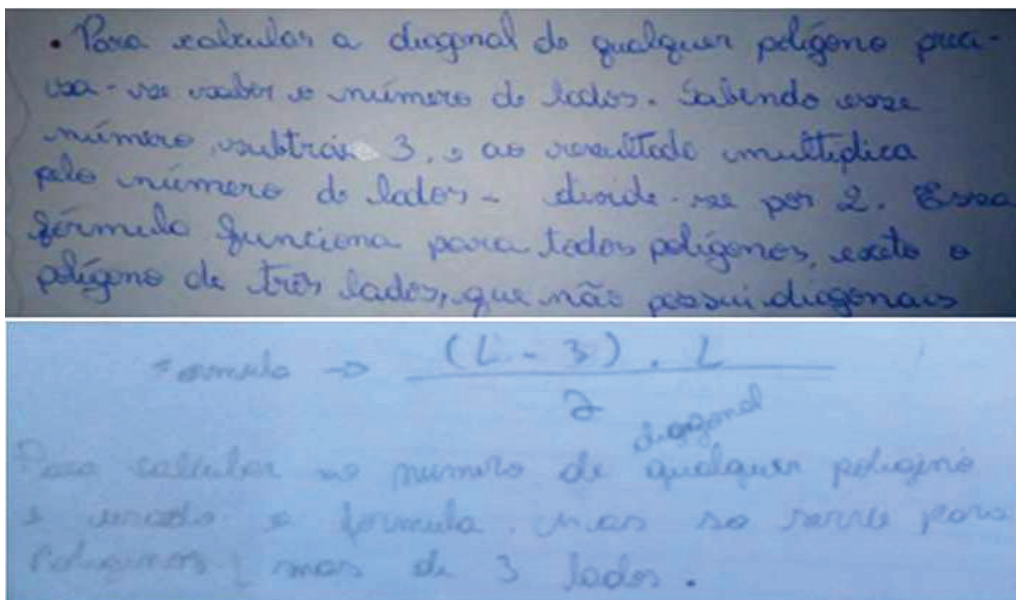 • Para calcular a diagonal de qualquer polígono preci-
sa-se saber o número de lados. Sabendo esse
número, subtrai 3, e ao resultado multiplica
pelo número de lados - divide-se por 2. Essa
fórmula funciona para todos polígonos, exeto o
polígono de três lados, que não possui diagonais
Formula → (L - 3) . L
2
diagonal
Para calcular o numero de qualquer poligino
é usado a formula. mas so serve para
Poliginos mas de 3 lados.